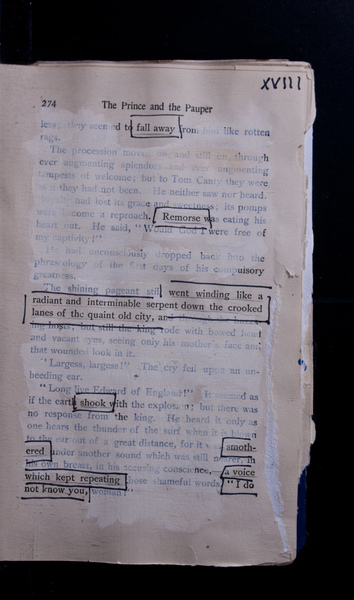 XVIII
274 The Prince and the Pauper
less; they seemed to fall away from him like rotten
rags.
The procession moved on, and still on, through
ever augmenting splendors and ever augmenting
tempests of welcome; but to Tom Canty they were
as if they had not been. He neither saw nor heard.
Royalty had lost its grace and sweetness; its pomps
were become a reproach. Remorse was eating his
heart out. He said, "Would God I were free of
my captivity!"
He had unconsciously dropped back into the
phraseology of the first days of his compulsory
greatness.
The shining pageant still went winding like a
radiant and interminable serpent down the crooked
lanes of the quaint old city, and
ing hosts; but still the king rode with bowed head
and vacant eyes, seeing only his mother's face and
that wounded look in it.
"Largess, largess!" The cry fell upon an un-
heeding ear.
"Long live Edward of England!" It seemed as
if the earth shook with the explosion; but there was
no response from the king. He heard it only as
one hears the thunder of the surf when it is blown
to the ear out of a great distance, for it was smoth-
ered under another sound which was still nearer, in
his own breast, in his accusing conscience, a voice
which kept repeating those shameful words, "I do
not know you, woman!"